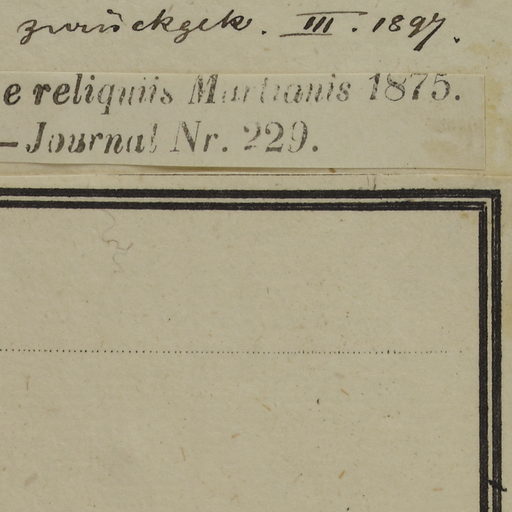 zurückgek. III. 1897.
e reliquiis Martianis 1875.
–Journal Nr. 229.